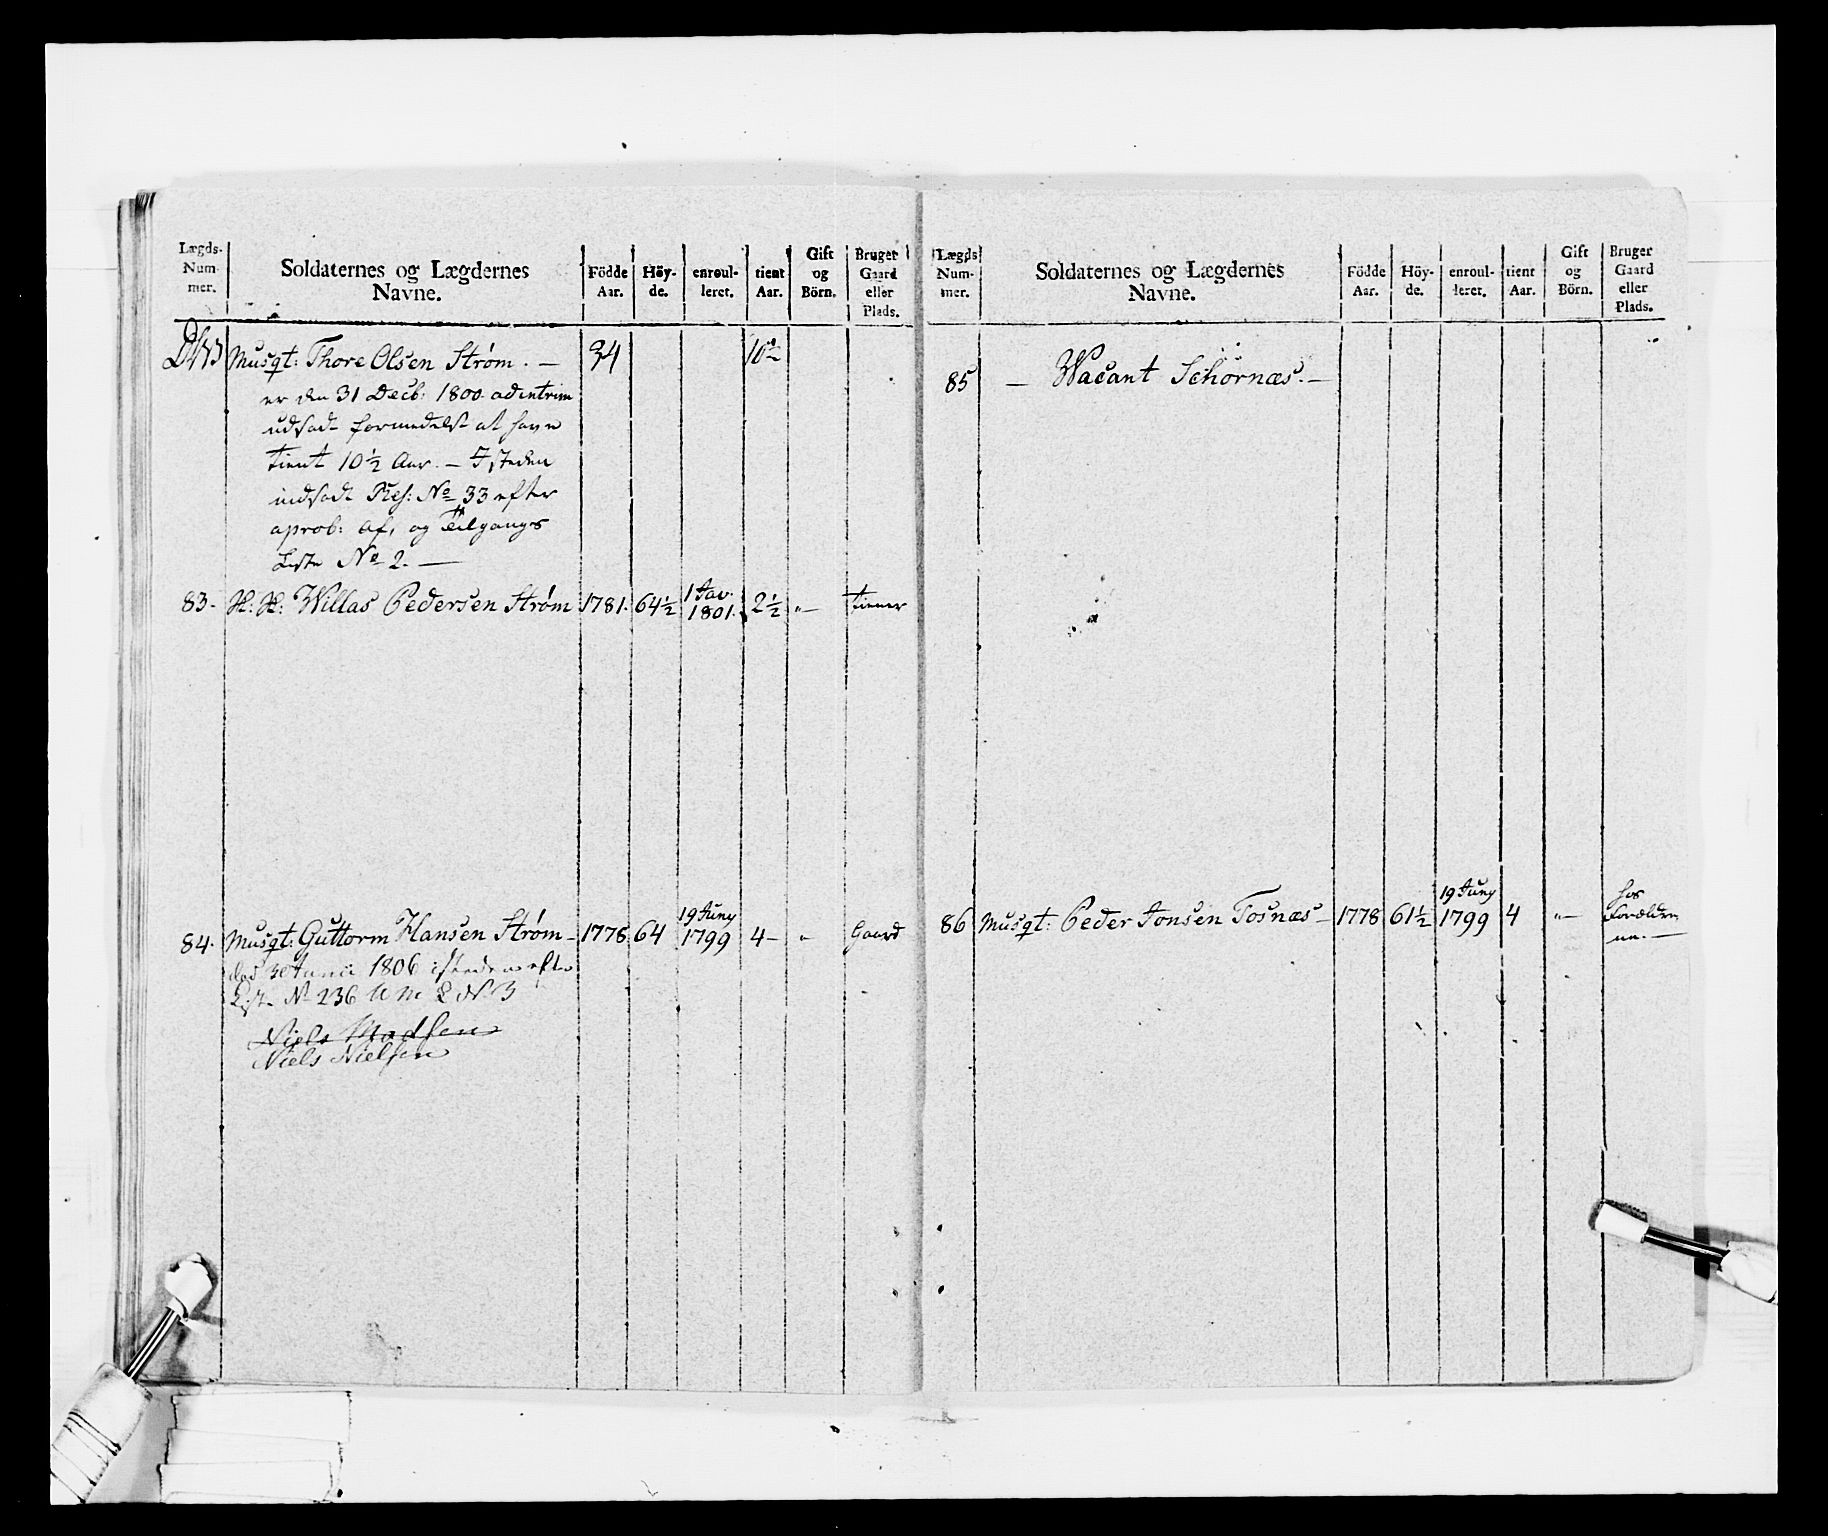 Lægds- Num- mer. | Soldaternes og Lægdernes Navne. | Födde Aar. | Höy- de. | enroul- leret. | tient Aar. | Gift og Börn. | Bruger Gaard eller Plads.
Musqt: Thore Olsen Strøm. — 34 10½
er den 31 Decb: 1800 ad intrim
udsadt formedelst at have
tient 10½ Aar. — I steden
indsadt Res: No 33 efter
aprob: Af, og Tilgangs
Liste No 2. —
83. H: H: Willas Pedersen Strøm 1781. 64½ 1 Jav. 1801. 2½ „— tiener
84. Musqt: Guttorm Hansen Strøm — 1778 64 19 Juny 1799 4 — „ Gaard
død 30 Juni 1806 isteden efter
List No 236 N 3
Niels Madsen
Niels Nielsen
Lægds Num- mer. | Soldaternes og Lægdernes Navne. | Födde Aar. | Höy- de. | enroul- leret. | tient Aar. | Gift og Börn. | Bruger Gaard eller Plads.
85 — Wacant Schornæs. —
86 Musqt: Peder Jonsen Tosnæs — 1778 61½ 19 Juny 1799 4 „— hos Forældre ne. —